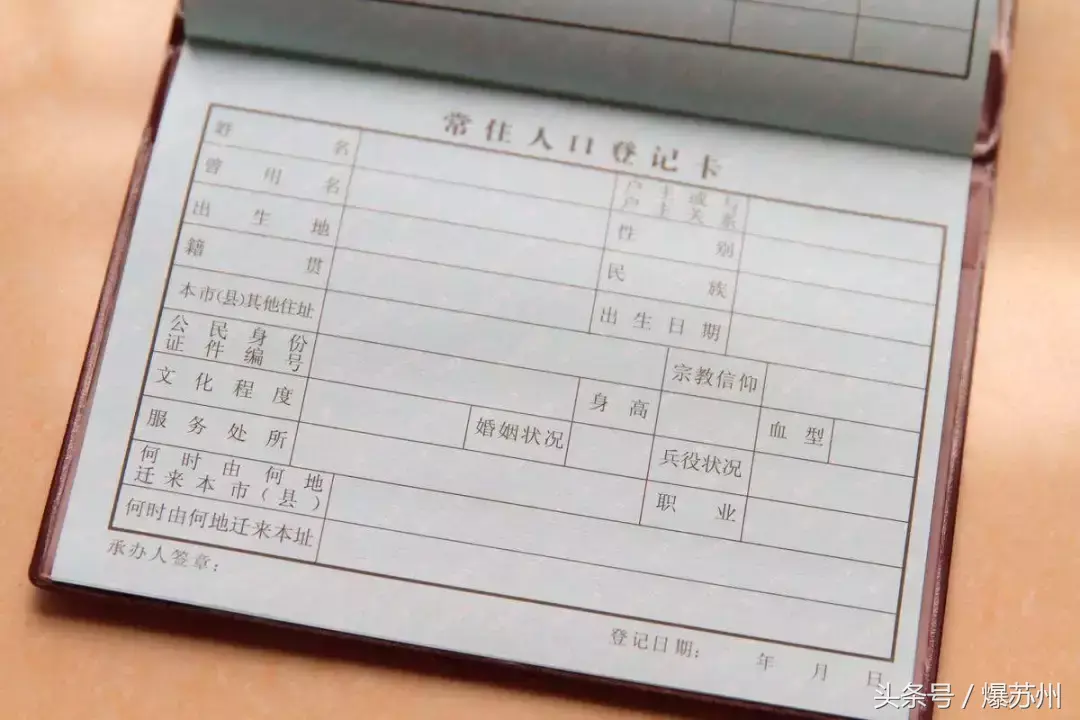 常住人口登记卡
姓名
户主或与
户主关系
曾用名
性别
出生地
民族
籍贯
出生日期
本市(县)其他住址
宗教信仰
公民身份
证件编号
身高
血型
文化程度
婚姻状况
兵役状况
服务处所
职业
何时由何地
迁来本市(县)
何时由何地迁来本址
承办人签章:
登记日期: 年 月 日
头条号 / 爆苏州